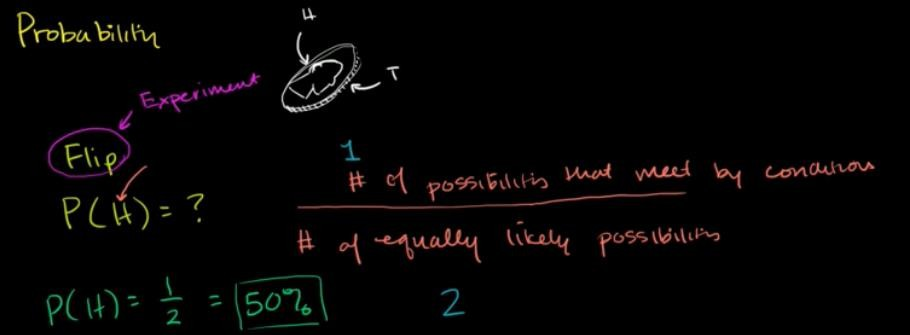 Probability
H
T
Experiment
Flip
P(H) = ?
1
# of possibilities that meet by condition
# of equally likely possibilities
2
P(H) = 1/2 = 50%